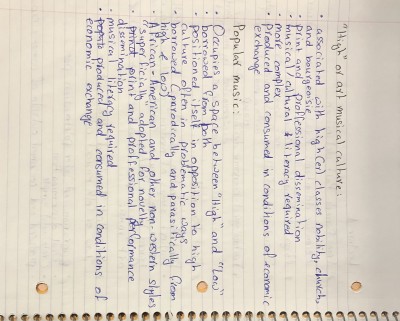 "High" or art musical culture:
• associated with high(er) classes nobility, church,
and bourgeoisie
• print and proffessional dissemination
• musical/cultural & literacy required
• more complex
• Produced and consumed in conditions of economic
exchange
Popular music:
• Occupies a space between "High" and "Low"
• borrowed from both
• positioned itself in opposition to high
culture often in problematic ways
• borrowed (parodically and parasitically from
high & low)
• African American and other non-western styles
"superficially" adopted for novelty
• print and proffessional performance
dissemination
• musical literacy required
• produced and consumed in conditions of
economic exchange